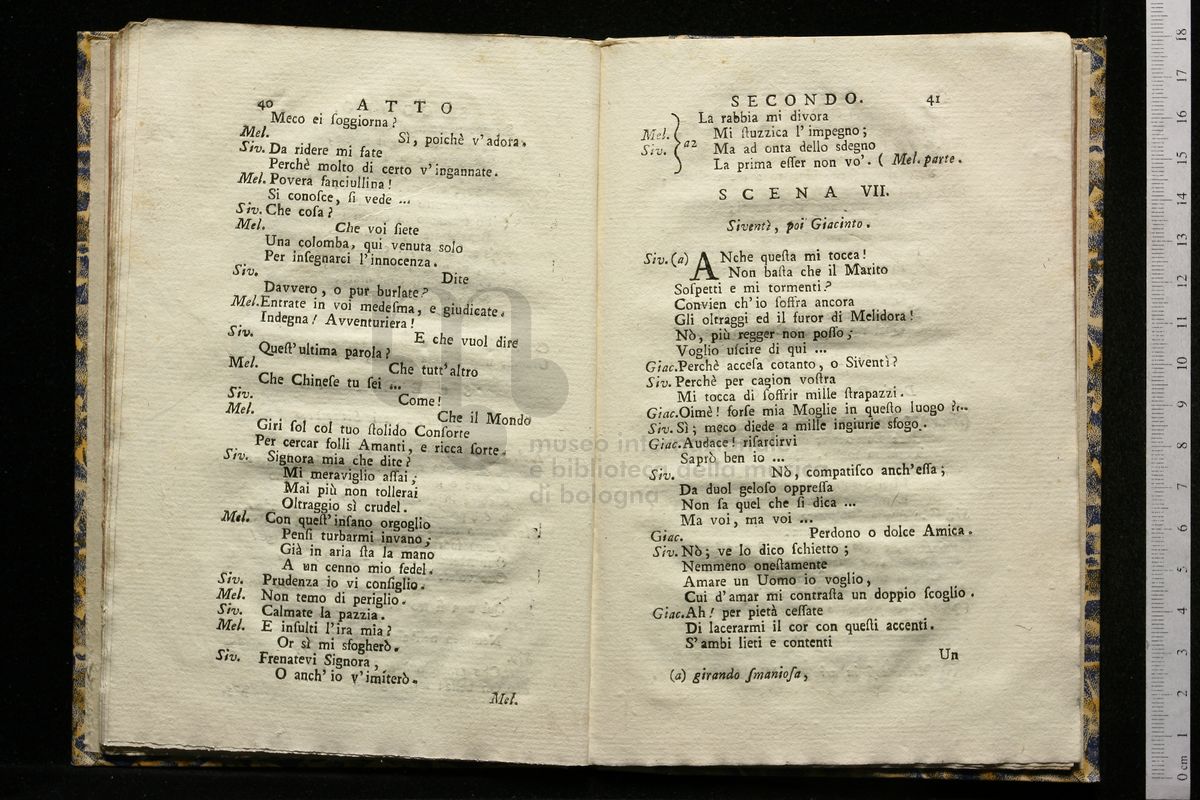 40 ATTO
Meco ei ſoggiorna?
Mel. Sì, poichè v'adora.
Siv. Da ridere mi fate
Perchè molto di certo v'ingannate.
Mel. Povera fanciullina!
Si conoſce, ſi vede ...
Siv. Che coſa?
Mel. Che voi ſiete
Una colomba, qui venuta solo
Per inſegnarci l'innocenza.
Siv. Dite
Davvero, o pur burlate?
Mel. Entrate in voi medeſma, e giudicate.
Indegna! Avventuriera!
Siv. E che vuol dire
Queſt'ultima parola?
Mel. Che tutt'altro
Che Chineſe tu ſei ...
Siv. Come!
Mel. Che il Mondo
Giri ſol col tuo ſtolido Conſorte
Per cercar folli Amanti, e ricca ſorte.
Siv. Signora mia che dite?
Mi meraviglio aſſai;
Mai più non tollerai
Oltraggio sì crudel.
Mel. Con queſt'inſano orgoglio
Penſi turbarmi invano;
Già in aria ſta la mano
A un cenno mio fedel.
Siv. Prudenza io vi conſiglio.
Mel. Non temo di periglio.
Siv. Calmate la pazzia.
Mel. E inſulti l'ira mia?
Or sì mi sfogherò.
Siv. Frenatevi Signora,
O anch'io v'imiterò.
Mel.
SECONDO. 41
La rabbia mi divora
Mel. Mi ſtuzzica l'impegno;
Siv. a2 Ma ad onta dello sdegno
La prima eſſer non vo'. ( Mel. parte.
SCENA VII.
Siventì, poi Giacinto.
Siv. (a) ANche queſta mi tocca!
Non baſta che il Marito
Soſpetti e mi tormenti?
Convien ch'io ſoffra ancora
Gli oltraggi ed il furor di Melidora!
Nò, più regger non poſſo;
Voglio uſcire di qui ...
Giac. Perchè acceſa cotanto, o Siventì?
Siv. Perchè per cagion voſtra
Mi tocca di ſoffrir mille ſtrapazzi.
Giac. Oimè! forſe mia Moglie in queſto luogo?...
Siv. Sì; meco diede a mille ingiurie sfogo.
Giac. Audace! riſarcirvi
Saprò ben io ...
Siv. Nò, compatiſco anch'eſſa;
Da duol geloſo oppreſſa
Non ſa quel che ſi dica ...
Ma voi, ma voi ...
Giac. Perdono o dolce Amica.
Siv. Nò; ve lo dico ſchietto;
Nemmeno oneſtamente
Amare un Uomo io voglio,
Cui d'amar mi contraſta un doppio ſcoglio.
Giac. Ah! per pietà ceſſate
Di lacerarmi il cor con queſti accenti.
S'ambi lieti e contenti
Un
(a) girando ſmanioſa,
m
museo
e biblioteca della
di bologna
0 cm 1 2 3 4 5 6 7 8 9 10 11 12 13 14 15 16 17 18